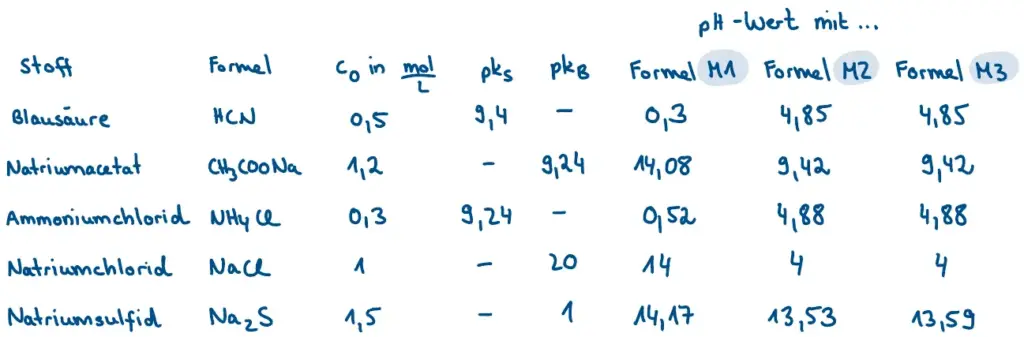 pH-Wert mit ...
Stoff Formel C₀ in mol/L pks pkB Formel M1 Formel M2 Formel M3
Blausäure HCN 0,5 9,4 – 0,3 4,85 4,85
Natriumacetat CH3COONa 1,2 – 9,24 14,08 9,42 9,42
Ammoniumchlorid NH4Cl 0,3 9,24 – 0,52 4,88 4,88
Natriumchlorid NaCl 1 – 20 14 4 4
Natriumsulfid Na2S 1,5 – 1 14,17 13,53 13,59